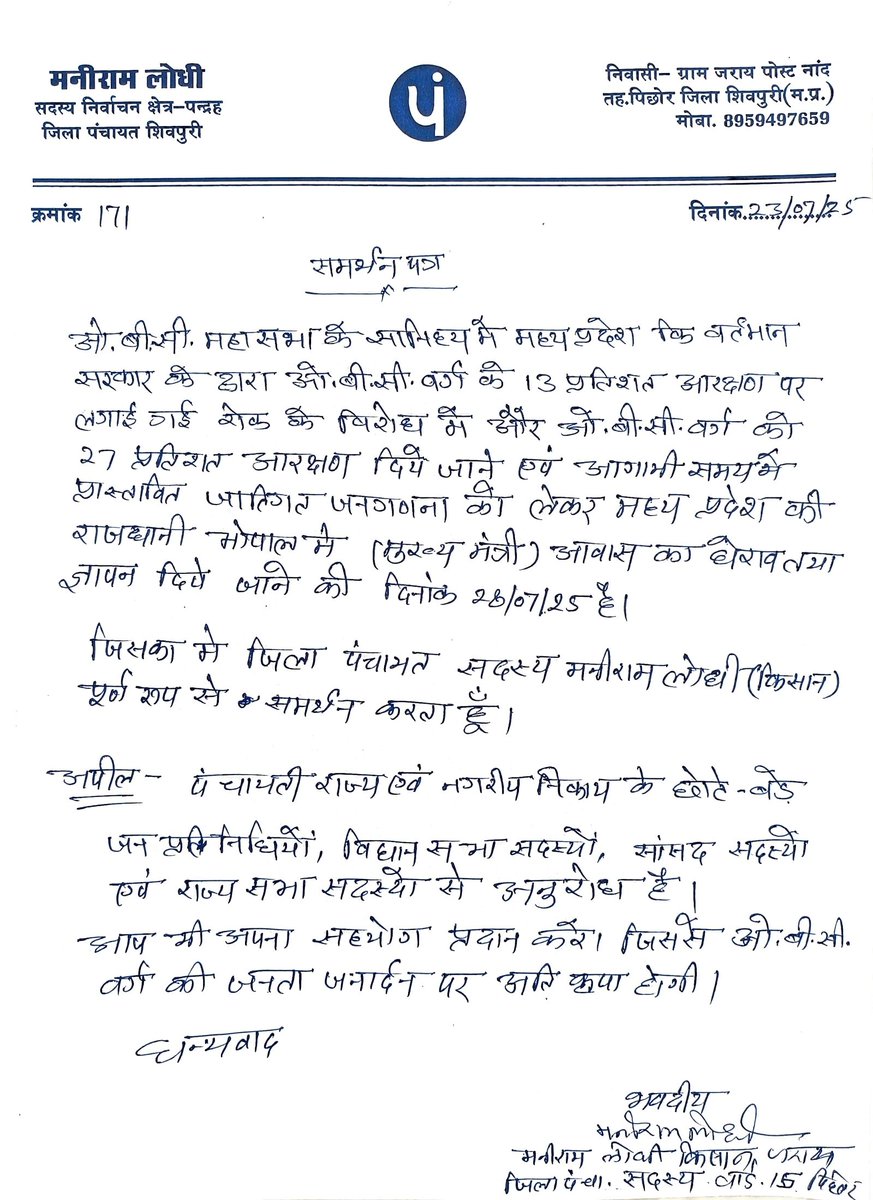 मनीराम लोधी
सदस्य निर्वाचन क्षेत्र–पन्द्रह
जिला पंचायत शिवपुरी
पं
निवासी– ग्राम जराय पोस्ट नांद
तह.पिछोर जिला शिवपुरी(म.प्र.)
मोबा. 8959497659
क्रमांक 171
दिनांक 23/07/25
समर्थन पत्र
ओ.बी.सी. महासभा के सानिध्य मे मध्य प्रदेश कि वर्तमान
सरकार के द्वारा ओ.बी.सी. वर्ग के 13 प्रतिशत आरक्षण पर
लगाई गई रोक के विरोध मे और ओ.बी.सी. वर्ग को
27 प्रतिशत आरक्षण दिये जाने एवं आगामी समय मे
प्रास्तावित जातिगत जनगणना को लेकर मध्य प्रदेश की
राजधानी भोपाल मे (मुख्य मंत्री) आवास का घेराव तथा
ज्ञापन दिये जाने की दिनांक 28/07/25 है।
जिसका मे जिला पंचायत सदस्य मनीराम लोधी (किसान)
पूर्ण रूप से समर्थन करता हूँ।
अपील - पंचायती राज्य एवं नगरीय निकाय के छोटे-बड़े
जन प्रतिनिधियों, विधान सभा सदस्यों, सांसद सदस्यो
एवं राज्य सभा सदस्यो से अनुरोध है।
आप भी अपना सहयोग प्रदान करें। जिससे ओ.बी.सी.
वर्ग की जनता जनार्दन पर अति कृपा होगी।
धन्यवाद
भवदीय
मनीराम लोधी
मनीराम लोधी किसान जराय
जिला पंचा. सदस्य वार्ड 15